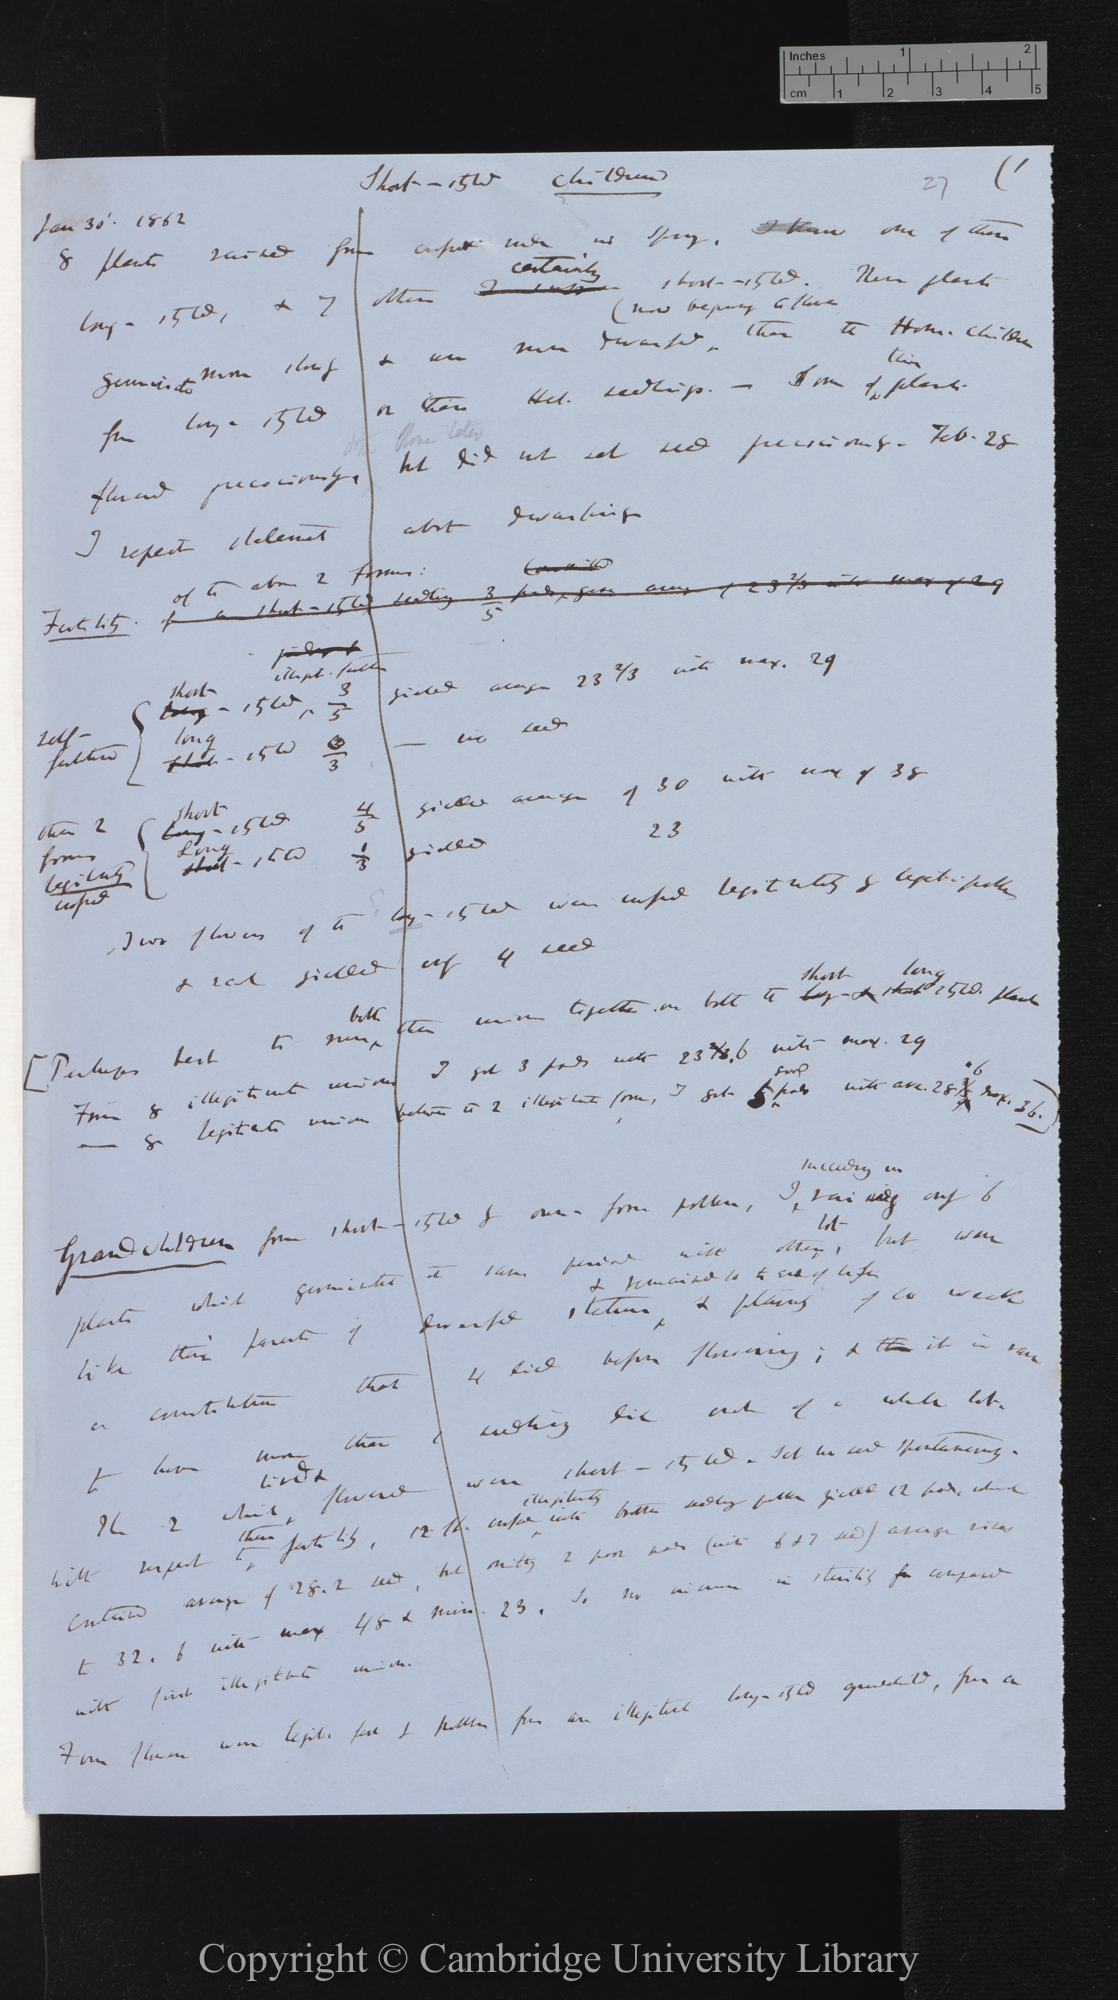 Inches 1 2
cm 1 2 3 4 5
Short-styled children 27 (1
Jan 30' 1862
8 plants raised from crossed under in Spring. I know one of them
certainly
long-styled, & 7 others short-styled. These plants
(now beginning to flower
germinated more slowly & are more dwarfed, than the Homo. children
this
from long-styled or than Het. seedlings. — Some of plants
flowered precociously, but did not set seed precociously. Feb. 28
I repeat statement about dwarfing
of the above 2 forms:
Fertility. of a short-styled seedling 3/5 pods, gave average of 23 2/3 with max of 29
illegit. pollen
self-pollen { short long-styled, 3/5 yielded average 23 2/3 with max. 29
long short-styled 0/3 — no seed
other 2 forms legitimately crossed { short long-styled 4/5 yielded average of 30 with max of 38
Long short-styled 1/3 yielded 23
Two flowers of the long-styled were crossed legitimately by legit. pollen
& each yielded only 4 seed
both short long
[Perhaps best to sum, these unions together on both the long- & short styled. plants
From 8 illegitimate unions I got 3 pods with 23.6 with max. 29
good
— 8 legitimate unions between the 2 illegitimate forms, I got 5 pods with ave. 28.6 max. 36.)
succeeding in
Grandchildren from short-styled by own-form pollen, I raising only 6
lot
plants which germinated at same period with others, but were
& remained so to end of life
like their parents of dwarfed stature, & plainly of so weak
a constitution that 4 died before flowering; & it is rare
to have more than 1 seedling die out of a whole lot.
lived &
The 2 which flowered were short-styled. Set no seed spontaneously.
their illegitimately
With respect to fertility, 12 fl. crossed with brother seedling pollen yielded 12 pods, which
contained average of 28.2 seed, but omitting 2 poor pods (with 6 & 7 seed) average rises
to 32.6 with max 48 & min. 23. So no increase in sterility compared
with first illegitimate union.
Four flowers were legit. fert by pollen from an illegitimate long-styled grandchild, from a
Copyright © Cambridge University Library